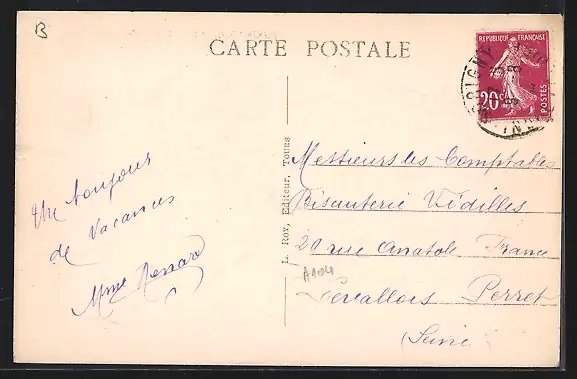 B
CARTE POSTALE
REPUBLIQUE FRANÇAISE
20c
POSTES
Un bonjour
de Vacances
Mme Renard
L. Roy, Editeur, Tours
Messieurs les Comptables
Bisauterie Vidilles
20 rue Anatole France
A104
Levallois Perret
(Seine)